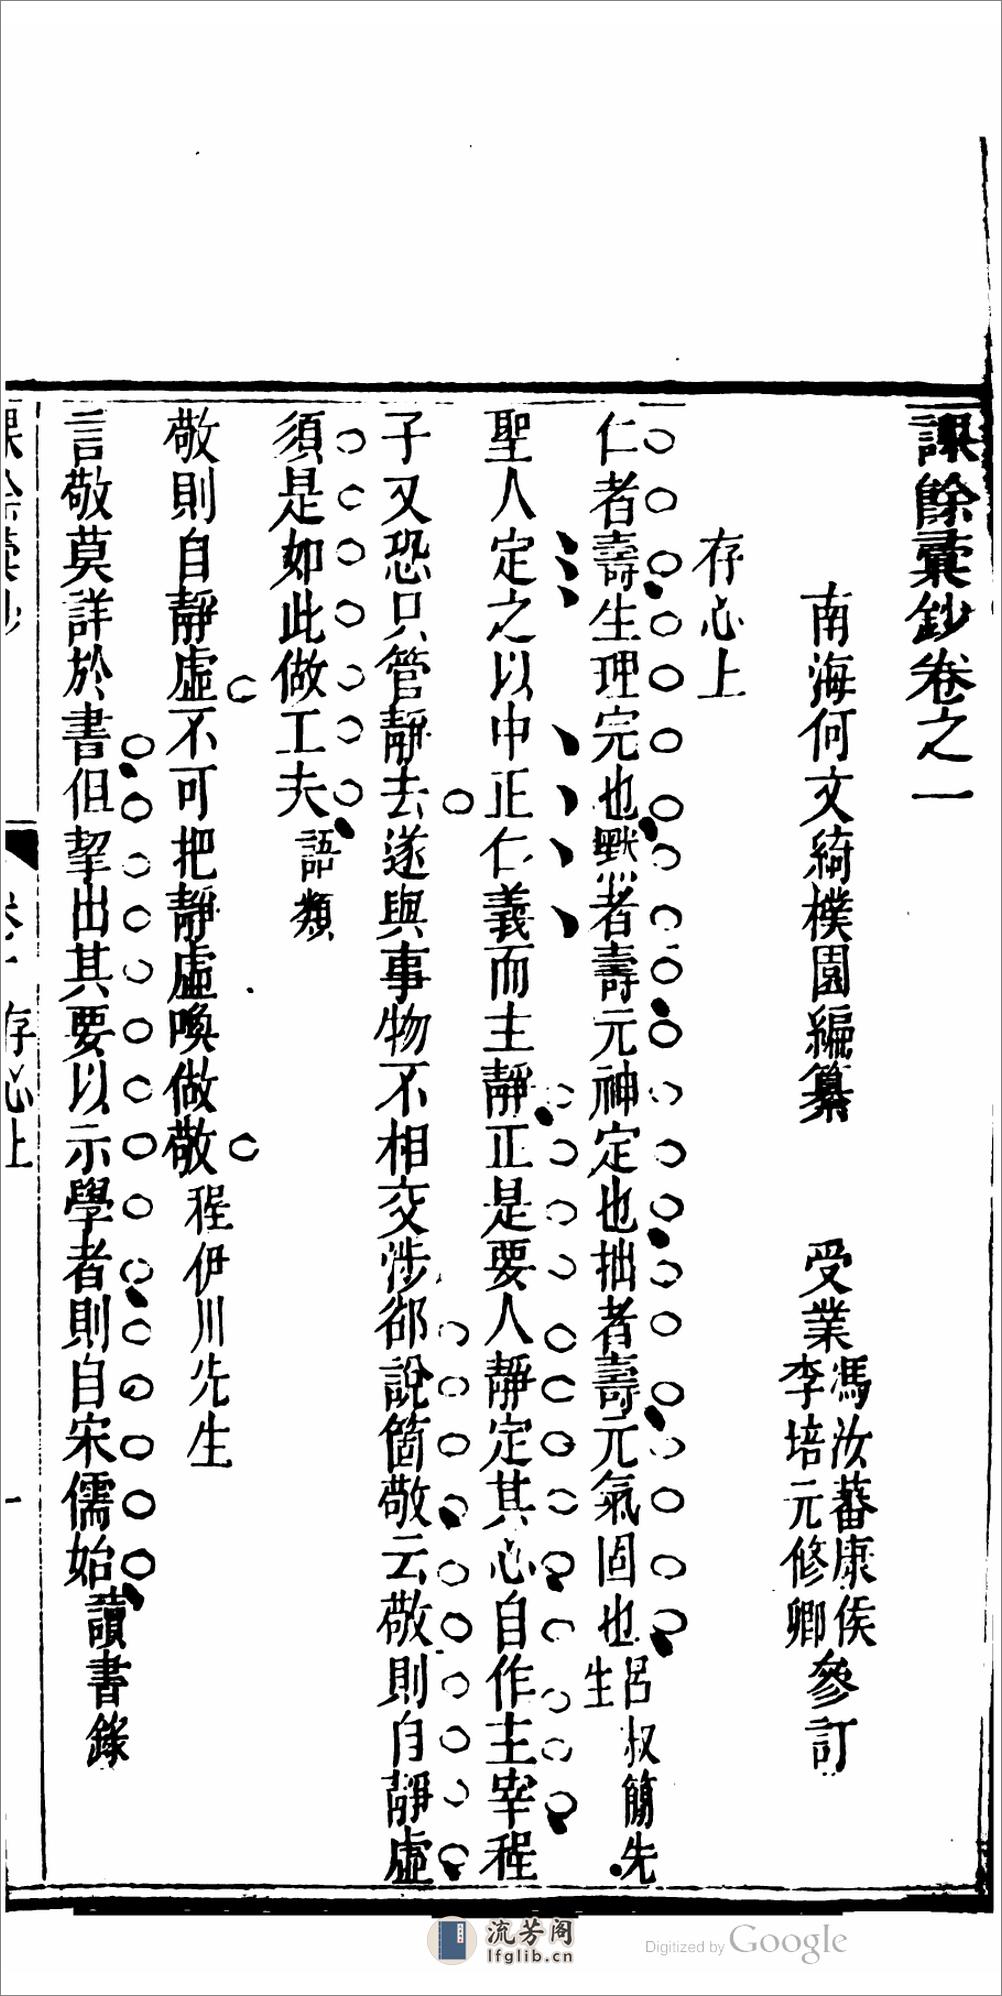 課餘彙鈔卷之一
南海何文綺樸園編纂　受業馮汝蕃康侯李培元修卿參訂
存心上
仁者壽生理完也默者壽元神定也拙者壽元氣固也呂叔簡先生
聖人定之以中正仁義而主靜正是要人靜定其心自作主宰程
子又恐只管靜去遂與事物不相交涉卻說箇敬云敬則自靜虛
須是如此做工夫語類
敬則自靜虛不可把靜虛喚做敬程伊川先生
言敬莫詳於書但挈出其要以示學者則自宋儒始讀書錄
課餘彙鈔　卷一　存心上　一
流芳阁
lfglib.cn
Digitized by Google